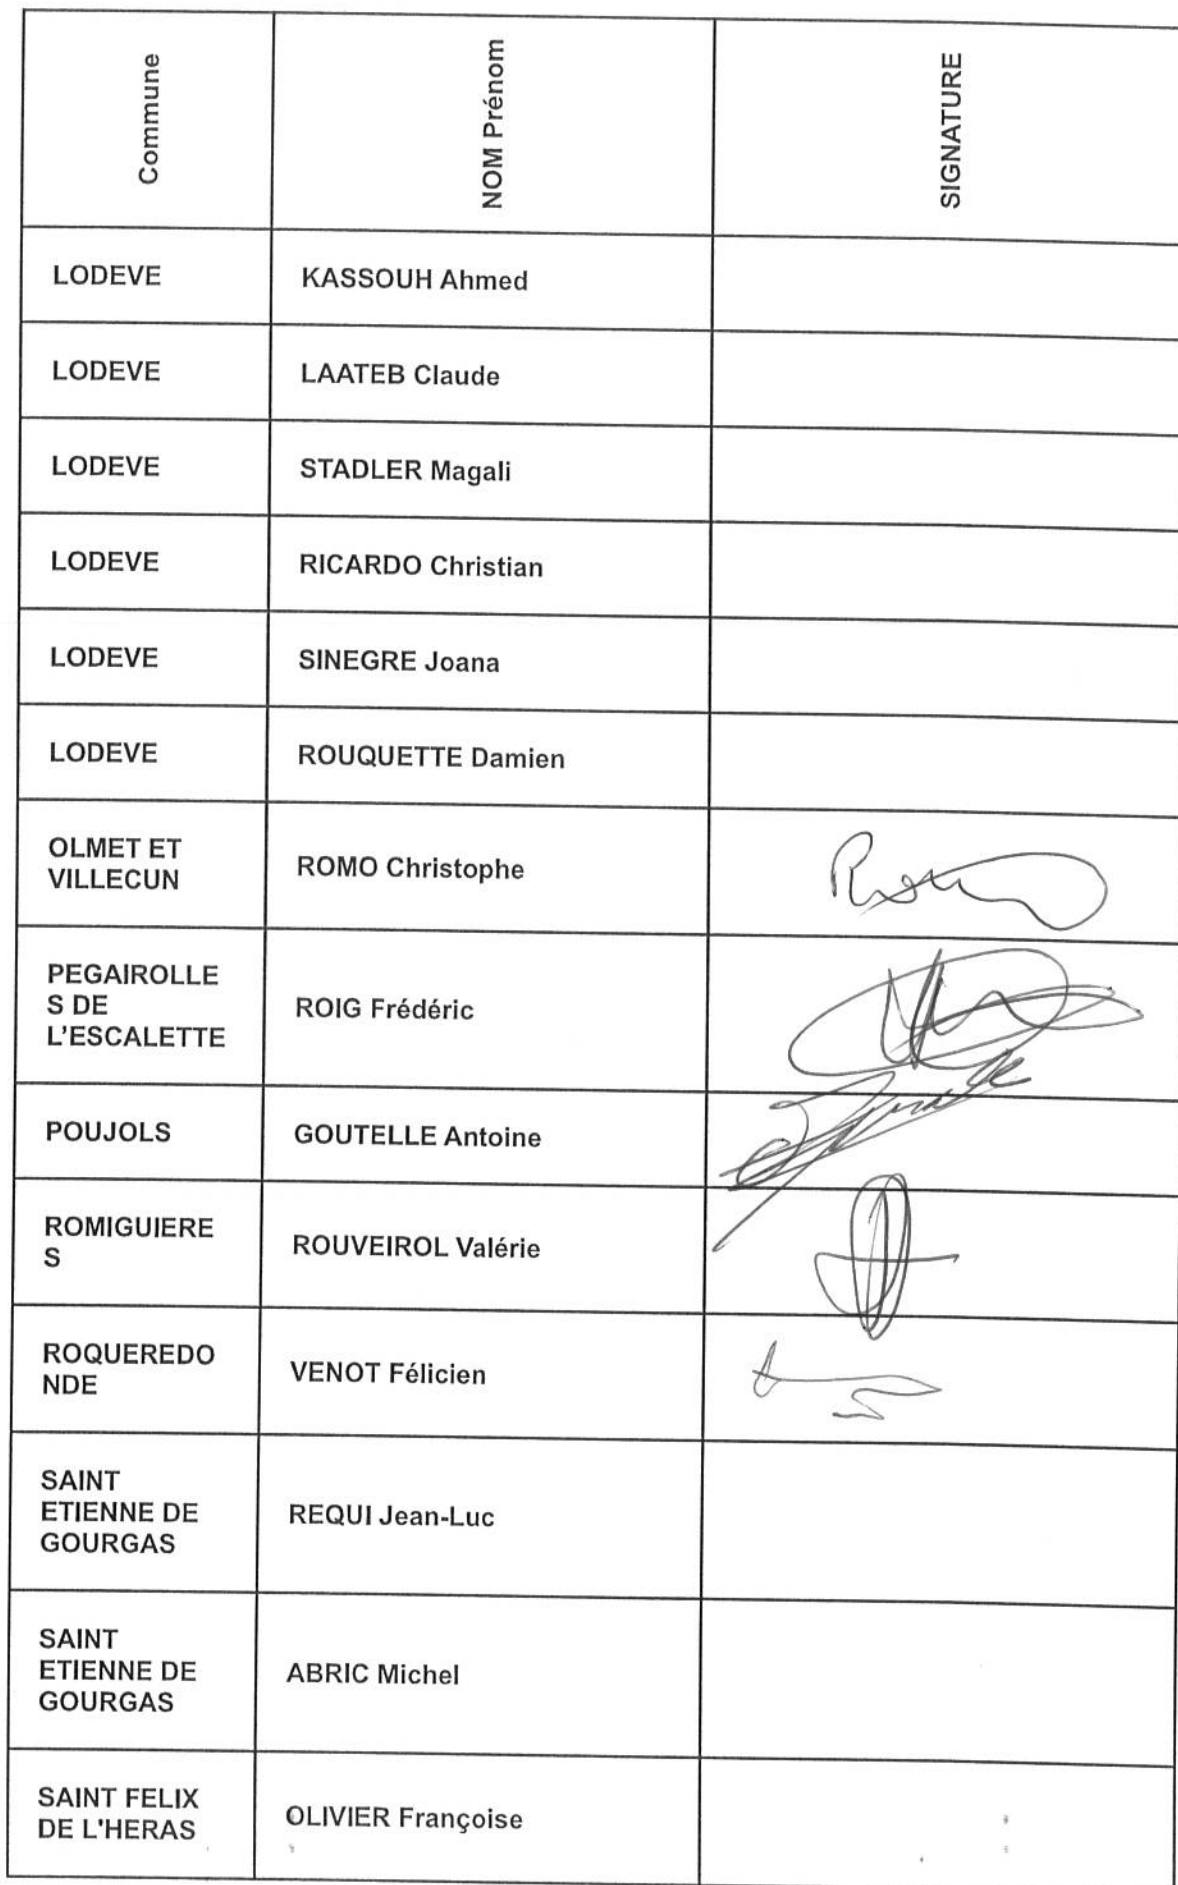 Commune NOM Prénom SIGNATURE
LODEVE KASSOUH Ahmed
LODEVE LAATEB Claude
LODEVE STADLER Magali
LODEVE RICARDO Christian
LODEVE SINEGRE Joana
LODEVE ROUQUETTE Damien
OLMET ET
VILLECUN
ROMO Christophe
PEGAIROLLE
S DE
L'ESCALETTE
ROIG Frédéric
POUJOLS GOUTELLE Antoine
ROMIGUIERE
S
ROUVEIROL Valérie
ROQUEREDO
NDE
VENOT Félicien
SAINT
ETIENNE DE
GOURGAS
REQUI Jean-Luc
SAINT
ETIENNE DE
GOURGAS
ABRIC Michel
SAINT FELIX
DE L'HERAS
OLIVIER Françoise